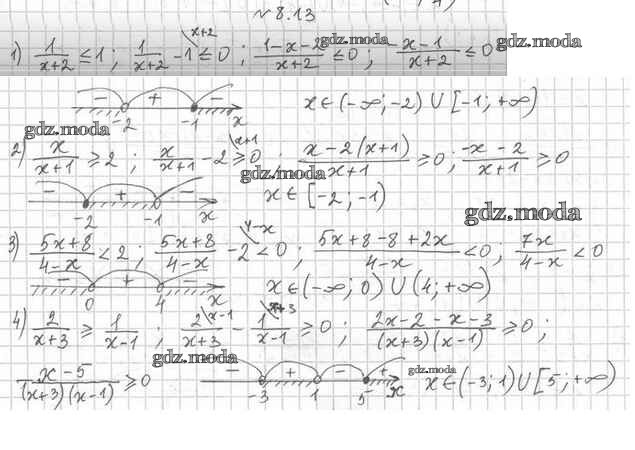 №8.13
1) 1/(x+2) ≤ 1 ; 1/(x+2) - 1 \x+2 ≤ 0 ; (1-x-2)/(x+2) ≤ 0 ; (x-1)/(x+2) ≤ 0
gdz.moda gdz.moda
- + - -2 -1 x x ∈ (-∞; -2) ∪ [-1; +∞)
gdz.moda
2) x/(x+1) ≥ 2 ; x/(x+1) - 2 \x+1 ≥ 0 ; (x-2(x+1))/(x+1) ≥ 0 ; (-x-2)/(x+1) ≥ 0
gdz.moda
- + - -2 -1 x x ∈ [-2; -1)
gdz.moda
3) (5x+8)/(4-x) < 2 ; (5x+8)/(4-x) - 2 \4-x < 0 ; (5x+8-8+2x)/(4-x) < 0 ; 7x/(4-x) < 0
- + - 0 4 x x ∈ (-∞; 0) ∪ (4; +∞)
4) 2/(x+3) ≥ 1/(x-1) ; 2\x-1/(x+3) - 1\x+3/(x-1) ≥ 0 ; (2x-2-x-3)/((x+3)(x-1)) ≥ 0 ;
gdz.moda gdz.moda
(x-5)/((x+3)(x-1)) ≥ 0 - + - + -3 1 5 x x ∈ (-3; 1) ∪ [5; +∞)